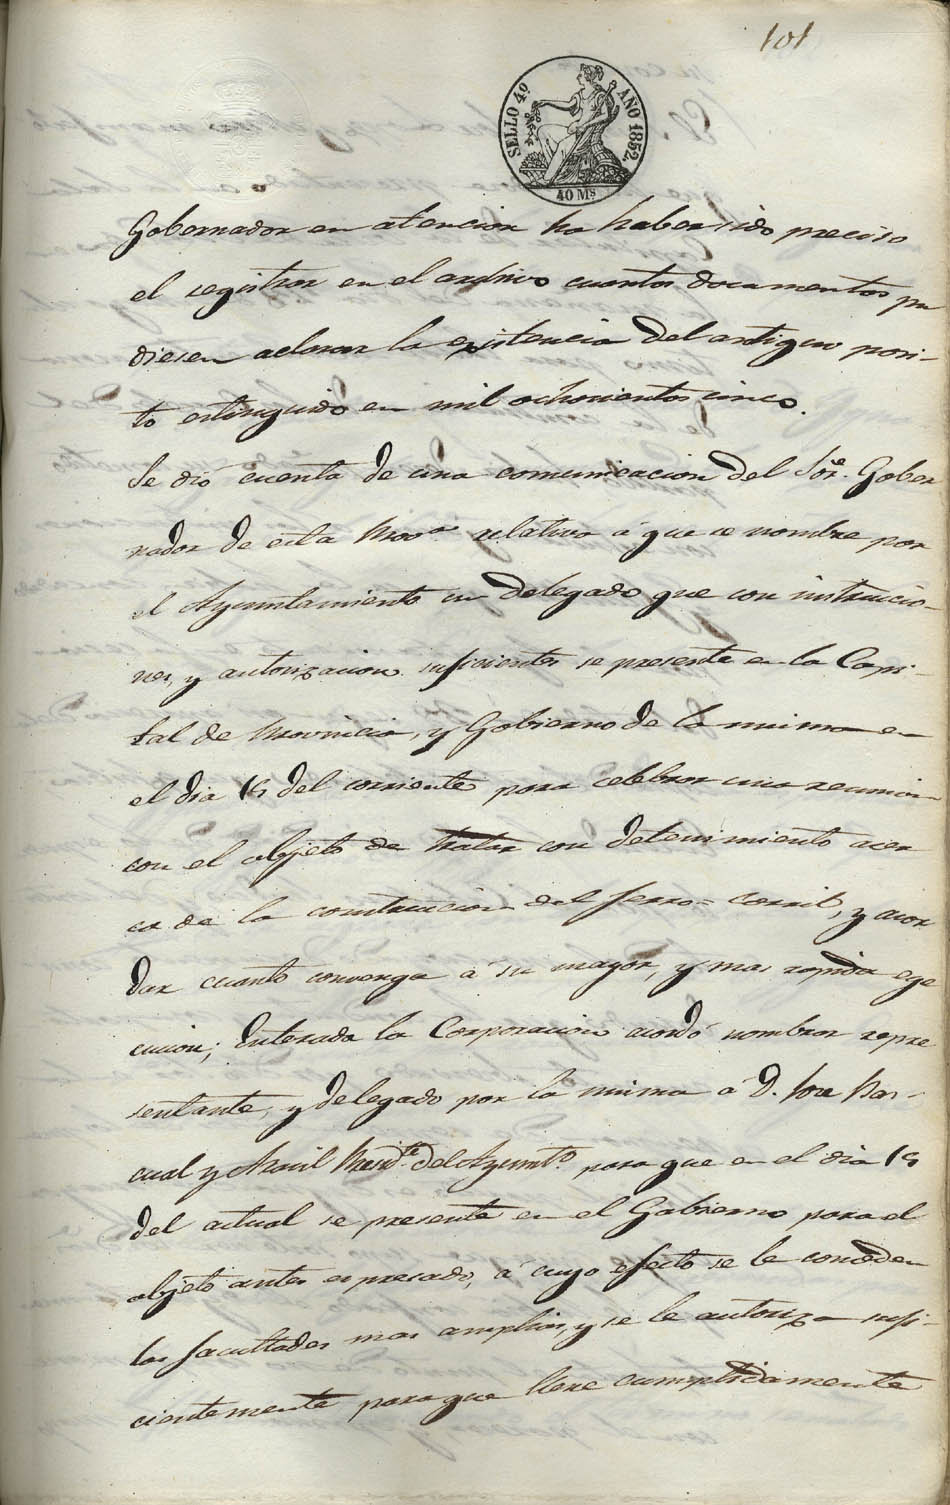 101
SELLO 4º AÑO 1852.
40 Ms
Gobernador en atencion ha haber sido preciso
el registrar en el archivo cuantos documentos pu
diesen aclarar la existencia del antiguo posi-
to estinguido en mil ochocientos cinco.
Se dió cuenta de una comunicacion del Sor. Gober
nador de esta Prova relativa á que se nombre por
el Ayuntamiento un delegado que con instruccio-
nes, y autorizacion suficientes se presente en la Capi-
tal de Provincia, y Gobierno de la misma en
el dia del corriente para celebrar una reunion
con el objeto de tratar con detenimiento acer
ca de la construccion del ferro=carril, y acor
dar cuanto convenga á su mayor, y mas rapida ege
cucion; Enterada la Corporacion acordó nombrar repre
sentante, y delegado por la misma á D. Jose Pas-
cual y Presidte. del Ayuntº. para que en el dia
del actual se presente en el Gobierno para el
objeto antes espresado, á cuyo efecto se le conceden
las facultades mas amplias, y se le autoriza sufi-
cientemente para que llene cumplidamente